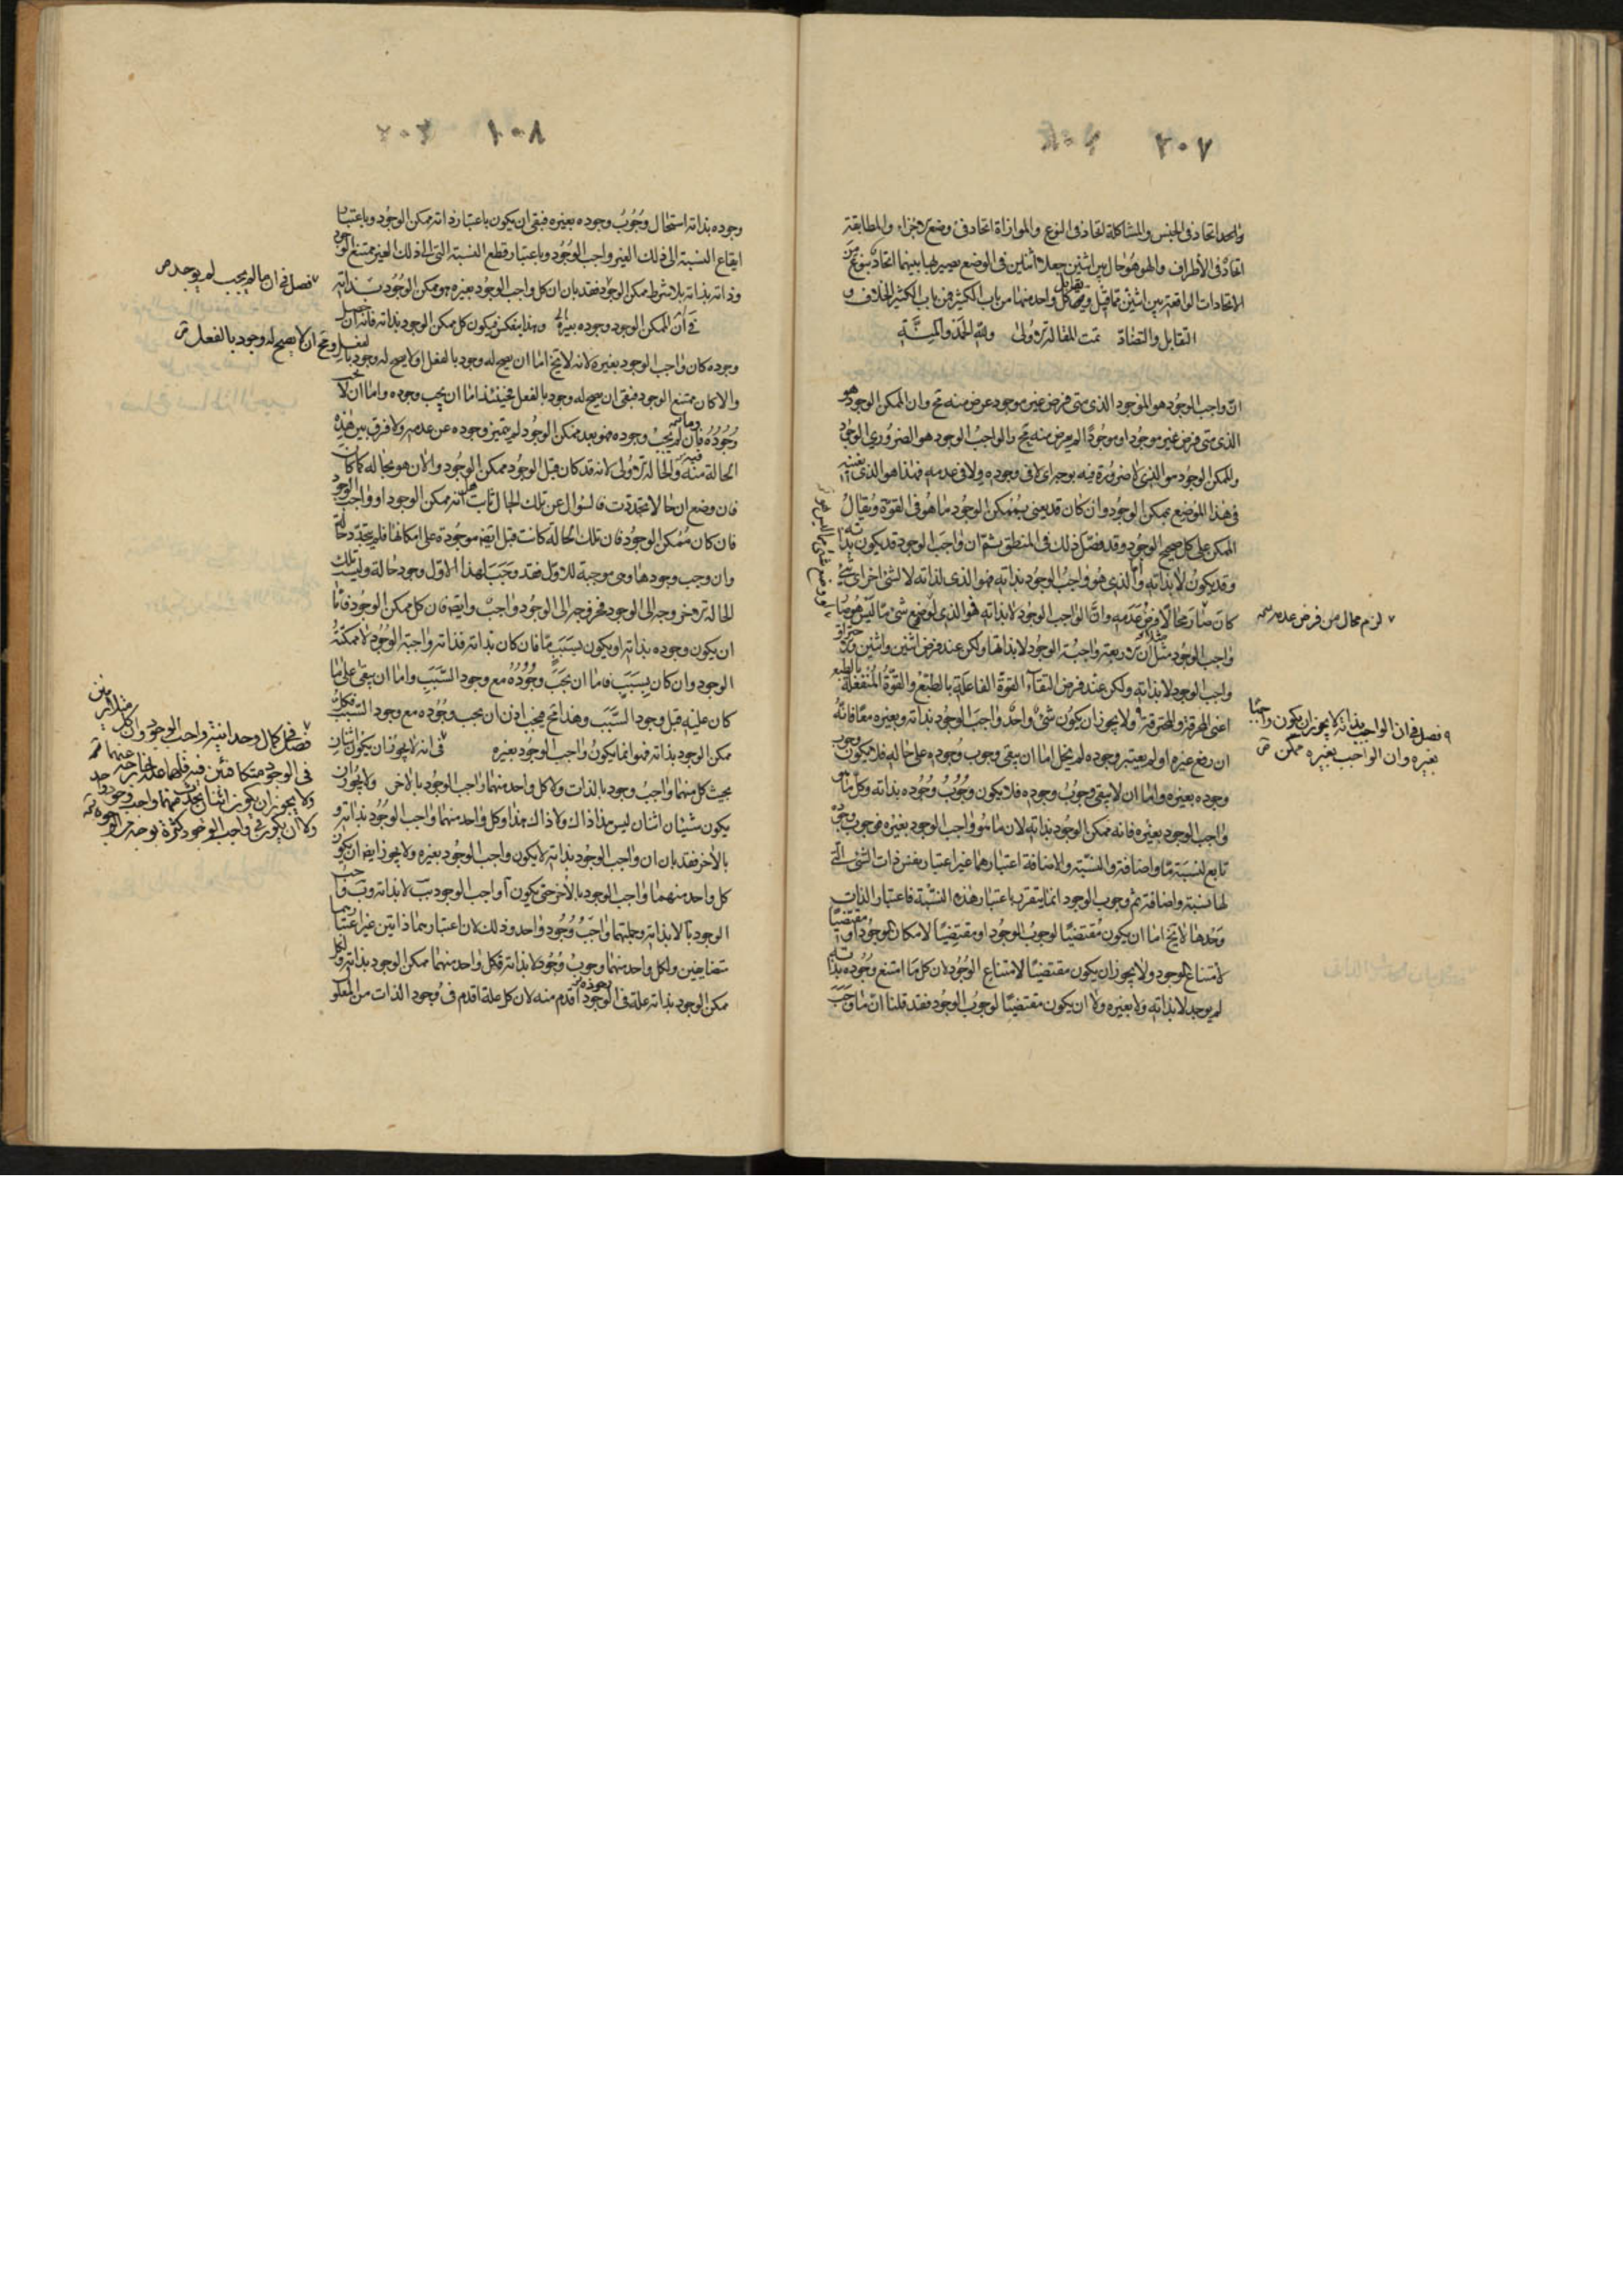 ٢٠٧
واحد اتحاد فى الجنس والمشاكلة اتحاد فى النوع والموازاة اتحاد فى وضع الاجزاء والمطابقة
اتحاد فى الأطراف والهوهو حال بين اثنين جعلا اثنين فى الوضع يصير لها بينهما اتحاد بنوع من
الاتحادات الواقعة بين اثنين مما قيل ويقابل كل واحد منها من باب الكثير من باب الكثير الخلاف و
التقابل والتضاد تمت المقالة الاولى ولله الحمد والمنّة
انّ واجب الوجود هو الموجود الذى متى فرض غير موجود عرض منه مح وان الممكن الوجود هو
الذى متى فرض غير موجود او موجودًا لم يعرض منه مح والواجب الوجود هو الضرورى الوجود
والممكن الوجود هو الذى لا ضرورة فيه بوجه اى لا فى وجوده ولا فى عدمه فهذا هو الذى نعنيه
فى هذا الموضع بممكن الوجود وان كان قد يعنى بممكن الوجود ما هو فى القوة ويقال
الممكن على كل صحيح الوجود وقد فصّل ذلك فى المنطق ثم انّ واجب الوجود قد يكون بذاته
وقد يكون لا بذاته وامّا الذى هو واجب الوجود بذاته فهو الذى لذاته لا لشئ اخر اى شئ
كان صار محالًا فرض عدمه وامّا الواجب الوجود لا بذاته فهو الذى لو وضع شئ ما ليس هو صار
واجب الوجود مثلا ان الاربعة واجبة الوجود لا بذاتها ولكن عند فرض اثنين واثنين والاحتراق
واجب الوجود لا بذاته ولكن عند فرض التقاء القوة الفاعلة بالطبع والقوة المنفعلة بالطبع
اعنى المحرقة والمحترقة ولا يجوز ان يكون شئ واحد واجب الوجود بذاته وبغيره معًا فانه
ان رفع غيره او لم يعتبر وجوده لم يخل اما ان يبقى وجوب وجوده على حاله فلا يكون وجوب
وجوده بغيره واما ان لا يبقى وجوب وجوده فلا يكون وجوب وجوده بذاته وكل ما هو
واجب الوجود بغيره فانه ممكن الوجود بذاته لان ما هو واجب الوجود بغيره فوجوب وجوده
تابع لنسبة ما واضافة والنسبة والاضافة اعتبارهما غير اعتبار نفس ذات الشئ التى
لها نسبة واضافة ثم وجوب الوجود انما يتقرر باعتبار هذه النسبة فاعتبار الذات
وحدها لا يخ اما ان يكون مقتضيًا لوجوب الوجود او مقتضيًا لامكان الوجود او مقتضيًا
لامتناع الوجود ولا يجوز ان يكون مقتضيًا لامتناع الوجود لان كل ما امتنع وجوده بذاته
لم يوجد لا بذاته ولا بغيره ولا ان يكون مقتضيًا لوجوب الوجود فقد قلنا ان ما وجب
لزم محال من فرض عدمه
فصل فى ان الواجب بذاته لا يجوز ان يكون واجبًا
بغيره وان الواجب بغيره ممكن
٢٠٨
وجوده بذاته استحال وجوب وجوده بغيره فبقى ان يكون باعتبار ذاته ممكن الوجود وباعتبار
ايقاع النسبة الى ذلك الغير واجب الوجود وباعتبار قطع النسبة التى الى ذلك الغير ممتنع الوجود
وذاته بذاته بلا شرط ممكن الوجود فقد بان ان كل واجب الوجود بغيره هو ممكن الوجود بذاته
فى ان الممكن الوجود وجوده بغيره وهذا ينعكس فيكون كل ممكن الوجود بذاته فانه ان حصل
وجوده كان واجب الوجود بغيره لانه لا يخ اما ان يصح له وجود بالفعل او لا يصح له وجود بالفعل ومح ان لا يصح له وجود بالفعل
والا كان ممتنع الوجود فبقى ان يصح له وجود بالفعل فحينئذ اما ان يجب وجوده واما ان لا يجب
وجوده فان لم يجب وجوده فهو بعد ممكن الوجود لم يتميز وجوده عن عدمه ولا فرق بين هذه
الحالة منه والحالة الاولى لانه قد كان قبل الوجود ممكن الوجود والان هو بحاله كما كان
فان وضع ان حالا تجددت فالسؤال عن تلك الحال ثابت هل انه ممكن الوجود او واجب الوجود
فان كان ممكن الوجود فان تلك الحالة كانت قبل ايضا موجودة على امكانها فلم يتجدد حالة
وان وجب وجودها وهى موجبة للاول فقد وجب لهذا الاول وجود حالة وليست تلك
الحالة الا خروجه الى الوجود فخروجه الى الوجود واجب وايضا فان كل ممكن الوجود فاما
ان يكون وجوده بذاته او يكون بسبب ما فان كان بذاته فذاته واجبة الوجود لا ممكنة
الوجود وان كان بسبب فاما ان يجب وجوده مع وجود السبب واما ان يبقى على ما
كان عليه قبل وجود السبب وهذا مح فيجب اذن ان يجب وجوده مع وجود السبب فكل
ممكن الوجود بذاته فهو انما يكون واجب الوجود بغيره فى انه لا يجوز ان يكون اثنان
بحيث كل منهما واجب وجود بالذات ولا كل واحد منهما واجب الوجود بالاخر ولا يجوز ان
يكون شيئان اثنان ليس هذا ذاك ولا ذاك هذا وكل واحد منهما واجب الوجود بذاته و
بالاخر فقد بان ان واجب الوجود بذاته لا يكون واجب الوجود بغيره ولا يجوز ايضا ان يكون
كل واحد منهما واجب الوجود بالاخر حتى يكون آ واجب الوجود بب لا بذاته وب واجب
الوجود بآ لا بذاته وجملتهما واجب وجود واحد وذلك لان اعتبارهما ذاتين غير اعتبارهما
متضايفين ولكل واحد منهما وجوب وجود لا بذاته فكل واحد منهما ممكن الوجود بذاته ولكل
ممكن الوجود بذاته علة فى وجوده اقدم منه لان كل علة اقدم فى وجود الذات من المعلول
فصل فى ان ما لم يجب لم يوجد
فصل فى كمال وحدانية واجب الوجود وان كل متلازمين
فى الوجود متكافئين فيه فلهما علة خارجة عنهما
ولا يجوز ان يكون اثنان يحدث منهما واجب وجود واحد
ولا ان يكون فى واجب الوجود كثرة بوجه من الوجوه